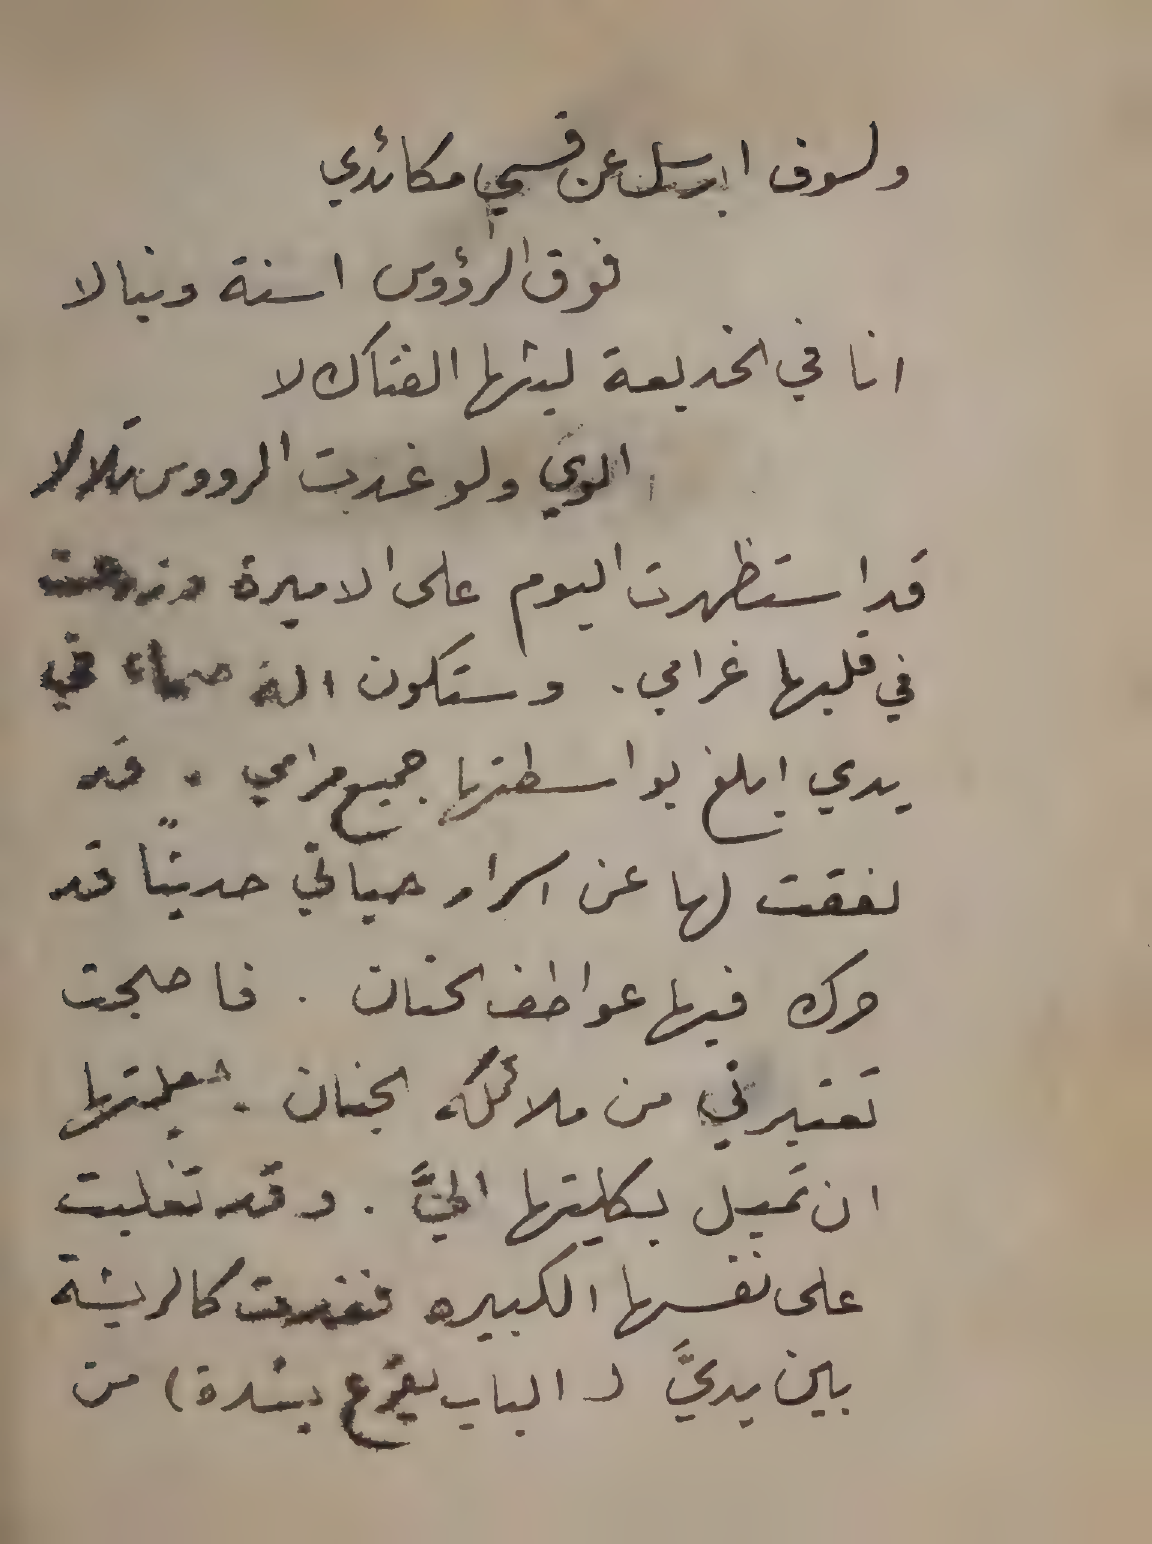 ولسوف ارسل عن قسي مكائدي
فوق الرؤوس اسنة ونبالا
انا في الخديعة ليثها الفتاك لا
الوي ولو غدت الرووس تلالا
قد استظهرت اليوم على الاميرة
في قلبها غرامي. وستكون في
يدي ابلغ بواسطتها جميع مرامي . قد
لفقت لها عن اسرار حياتي حديثًا قد
حرك فيها عواطف الحنان . فاصبحت
تعتبرني من ملائكه الجنان . جعلتها
ان تميل بكليتها اليَّ . وقد تغلبت
على نفسها الكبيره فغدت كالريشة
بين يديَّ ( الباب يقرع بشدة) من